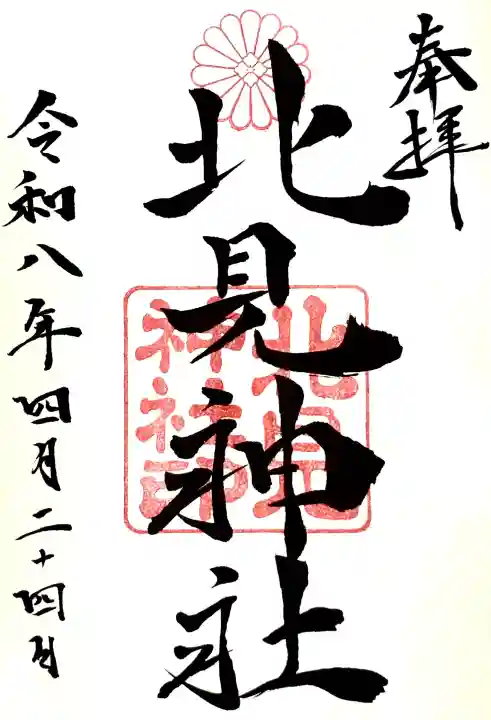 奉拝
北見神社
令和八年四月二十四日
北見
神社印